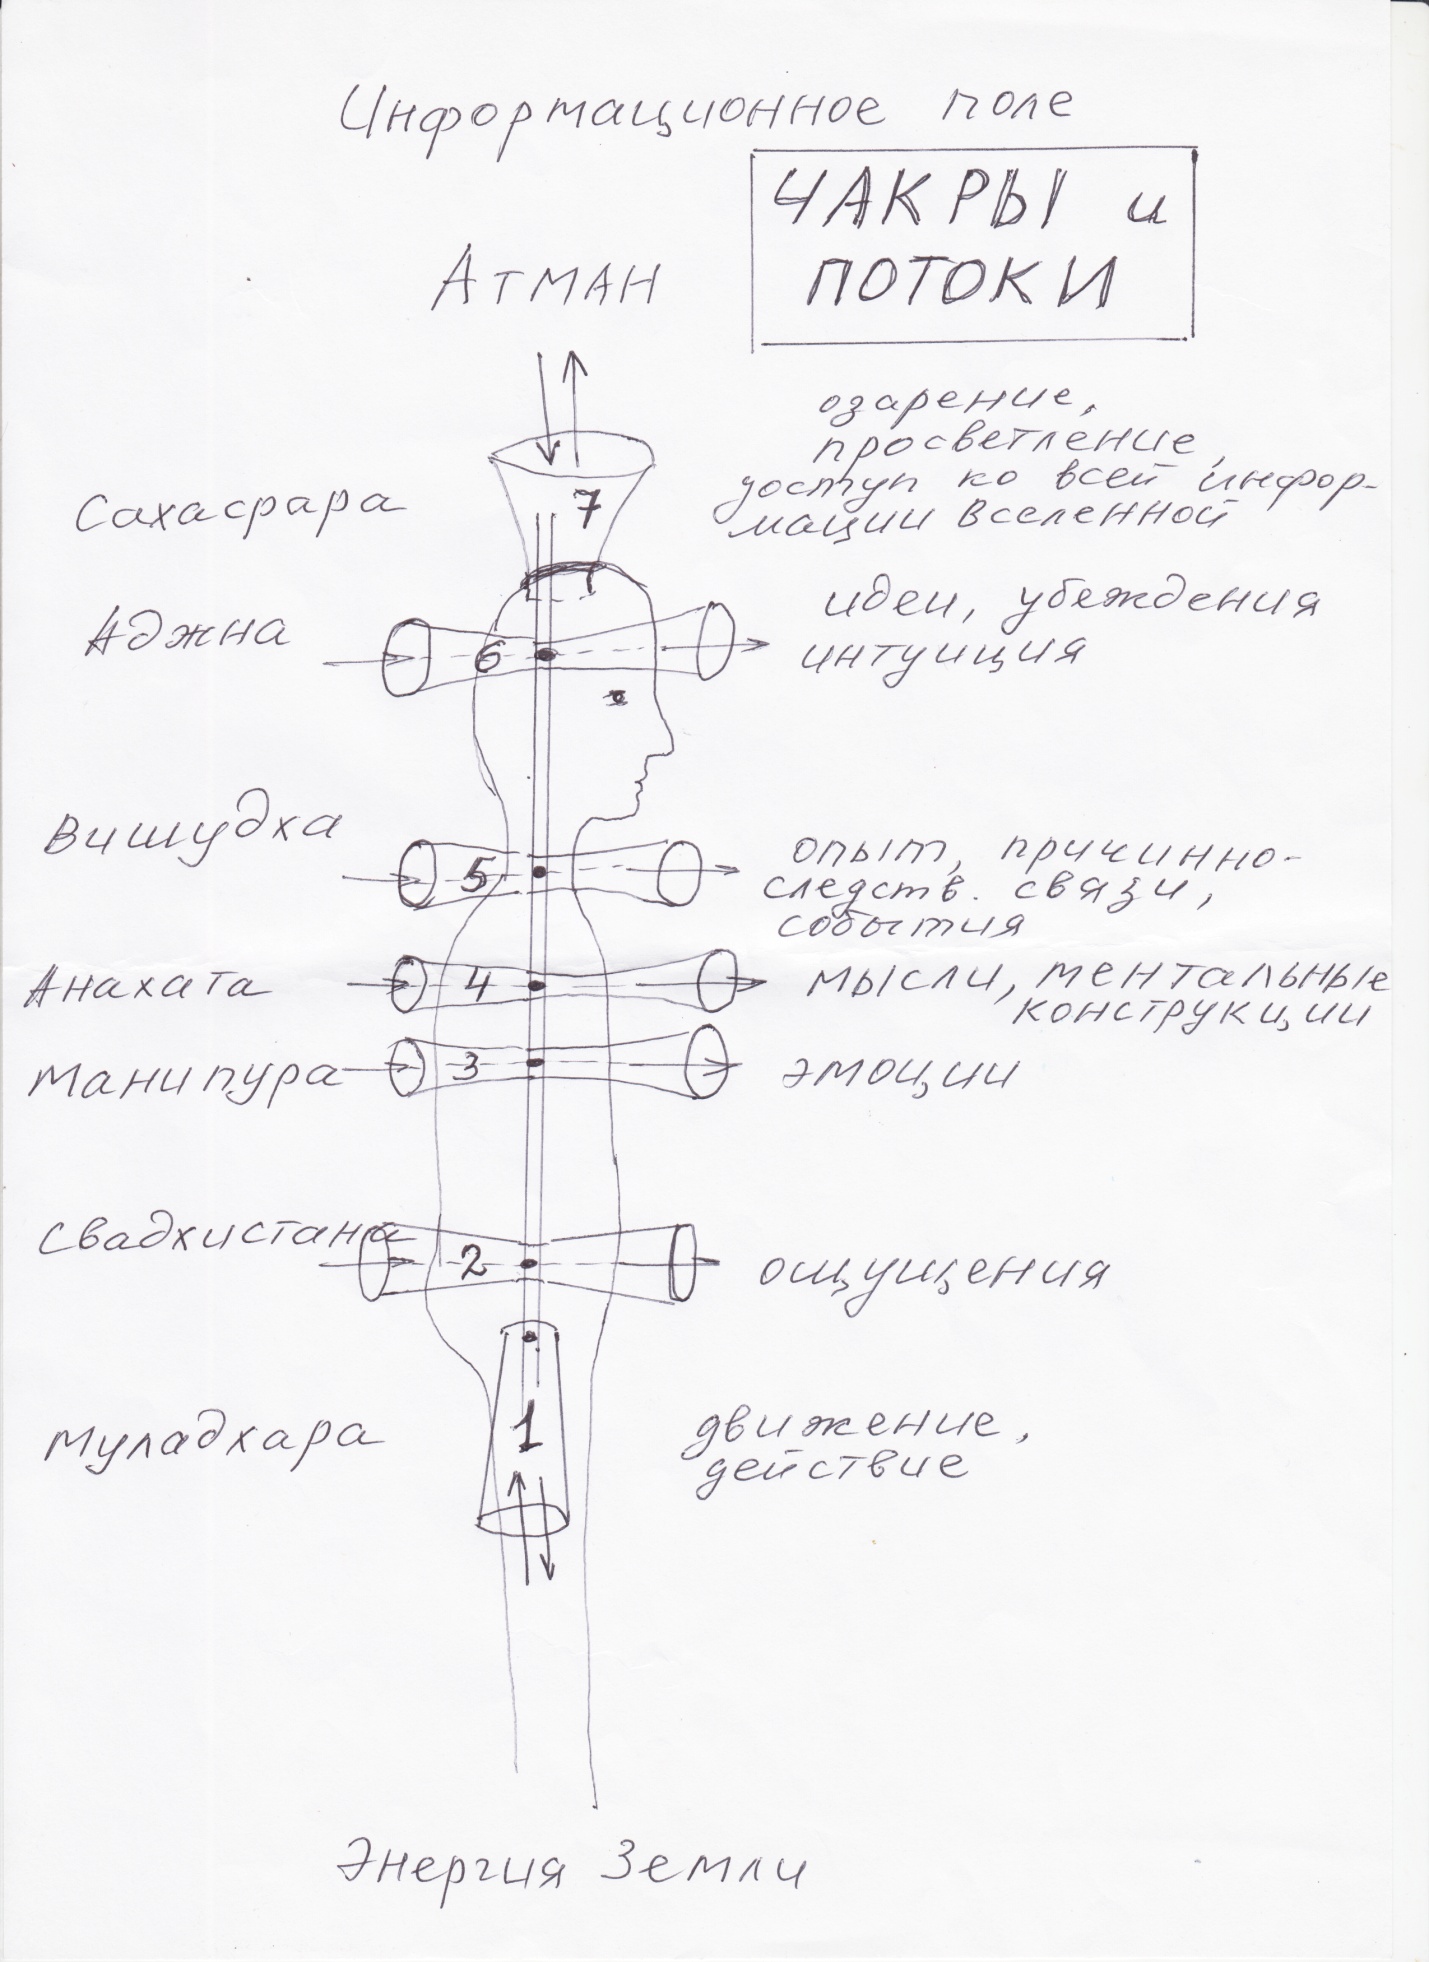 Информационное поле
ЧАКРЫ и
ПОТОКИ
Атман
озарение,
просветление,
доступ ко всей инфор-
мации вселенной
Сахасрара
7
Аджна
6
идеи, убеждения
интуиция
Вишудха
5
опыт, причинно-
следств. связи,
события
Анахата
4
мысли, ментальные
конструкции
Манипура
3
эмоции
Свадхистана
2
ощущения
Муладхара
1
движение,
действие
Энергия Земли